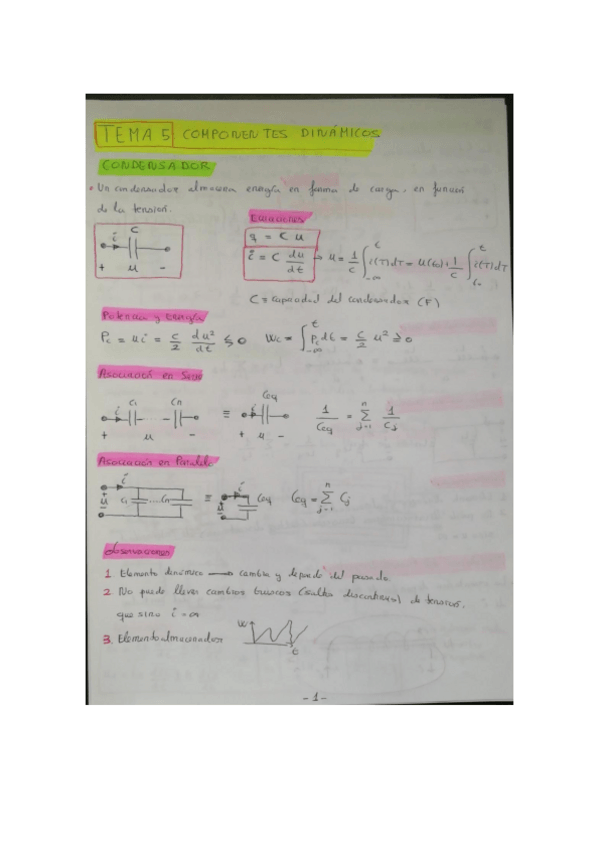 TEMA 5 COMPONENTES DINÁMICOS
CONDENSADOR
• Un condensador almacena energía en forma de carga, en función
de la tensión.
C
i
+ u -
Ecuaciones
q = C u
i = C du/dt → u = 1/C ∫_{-∞}^{t} i(τ)dτ = u(t₀) + 1/C ∫_{t₀}^{t} i(τ)dτ
C ≡ capacidad del condensador (F)
Potencia y energía
Pc = u i = C/2 du²/dt ≶ 0 Wc = ∫_{-∞}^{t} Pc dt = C/2 u² ≥ 0
Asociación en Serie
i C1 Cn ≡ i Ceq 1/Ceq = Σ_{j=1}^{n} 1/Cj
+ u - + u -
Asociación en Paralelo
i + u - C1 ... Cn ≡ i u Ceq Ceq = Σ_{j=1}^{n} Cj
Observaciones
1 Elemento dinámico → cambia y depende del pasado
2 No puede llevar cambios bruscos (saltos discontinuos) de tensión,
que sino i = ∞
3. Elemento almacenador W t
- 1 -